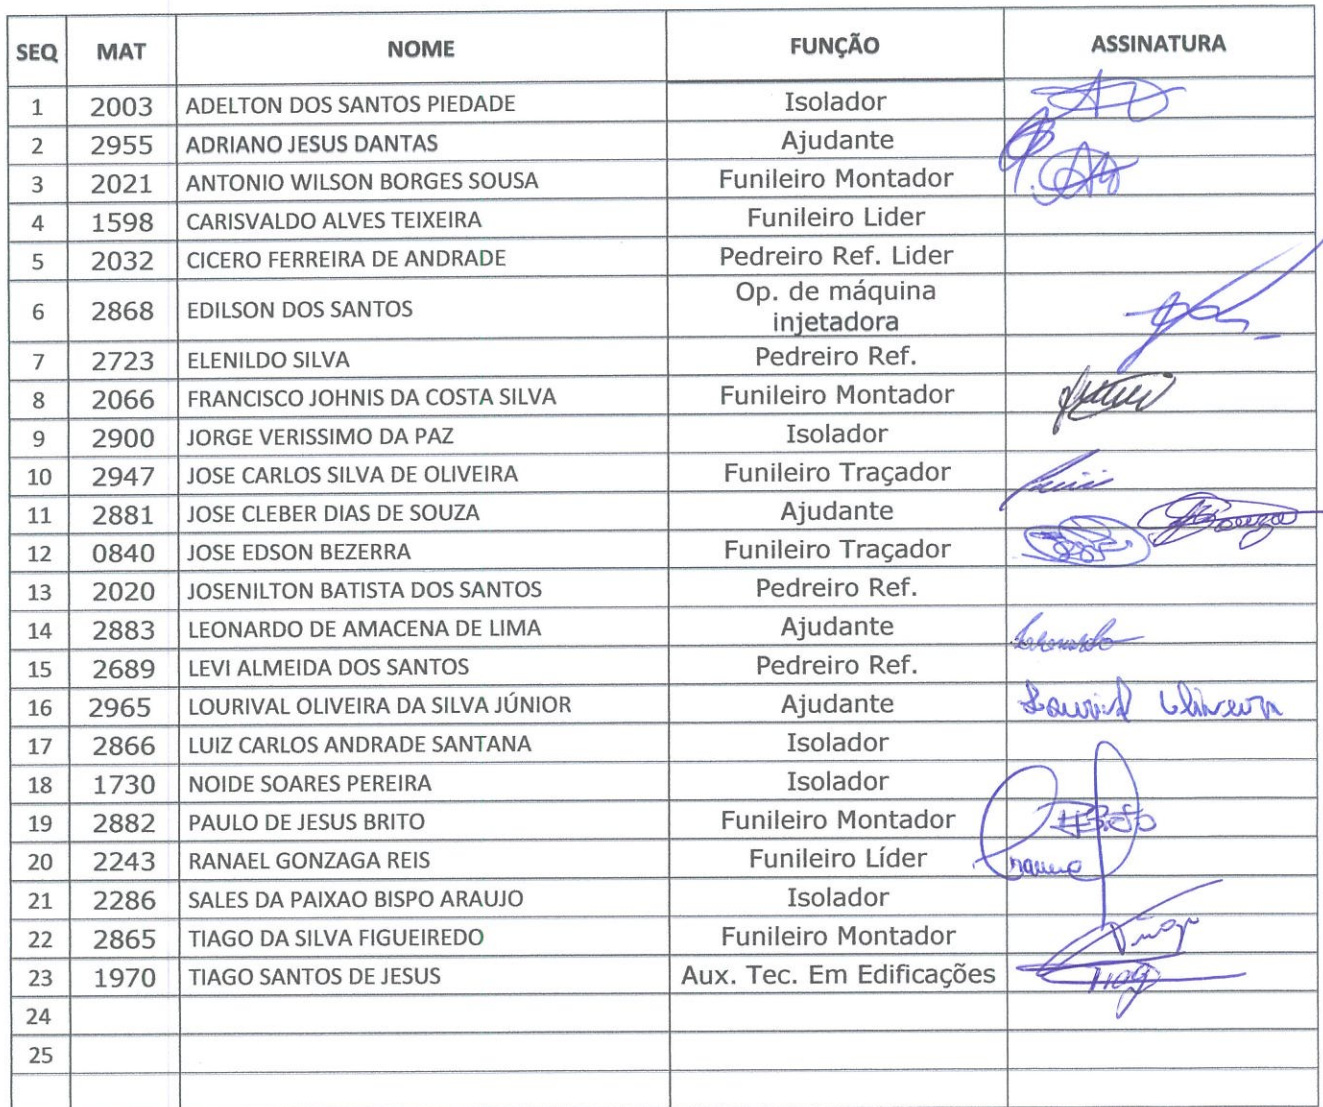 SEQ MAT NOME FUNÇÃO ASSINATURA
1 2003 ADELTON DOS SANTOS PIEDADE Isolador
2 2955 ADRIANO JESUS DANTAS Ajudante
3 2021 ANTONIO WILSON BORGES SOUSA Funileiro Montador
4 1598 CARISVALDO ALVES TEIXEIRA Funileiro Lider
5 2032 CICERO FERREIRA DE ANDRADE Pedreiro Ref. Lider
6 2868 EDILSON DOS SANTOS Op. de máquina
injetadora
7 2723 ELENILDO SILVA Pedreiro Ref.
8 2066 FRANCISCO JOHNIS DA COSTA SILVA Funileiro Montador
9 2900 JORGE VERISSIMO DA PAZ Isolador
10 2947 JOSE CARLOS SILVA DE OLIVEIRA Funileiro Traçador
11 2881 JOSE CLEBER DIAS DE SOUZA Ajudante
12 0840 JOSE EDSON BEZERRA Funileiro Traçador
13 2020 JOSENILTON BATISTA DOS SANTOS Pedreiro Ref.
14 2883 LEONARDO DE AMACENA DE LIMA Ajudante
15 2689 LEVI ALMEIDA DOS SANTOS Pedreiro Ref.
16 2965 LOURIVAL OLIVEIRA DA SILVA JÚNIOR Ajudante
17 2866 LUIZ CARLOS ANDRADE SANTANA Isolador
18 1730 NOIDE SOARES PEREIRA Isolador
19 2882 PAULO DE JESUS BRITO Funileiro Montador
20 2243 RANAEL GONZAGA REIS Funileiro Líder
21 2286 SALES DA PAIXAO BISPO ARAUJO Isolador
22 2865 TIAGO DA SILVA FIGUEIREDO Funileiro Montador
23 1970 TIAGO SANTOS DE JESUS Aux. Tec. Em Edificações
24
25